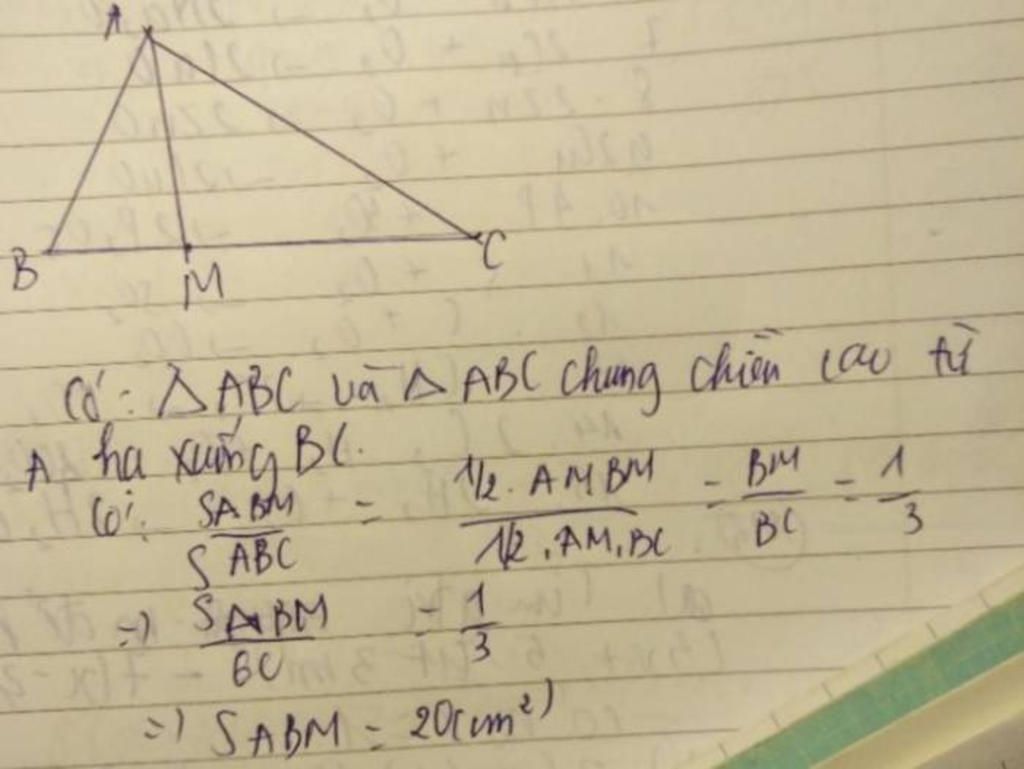 A
B
M
C
Có: △ ABC và △ ABC chung chiều cao từ
A hạ xuống BC.
Có: SABM / SABC = 1/2. AM BM / 1/2. AM. BC = BM / BC = 1 / 3
=> SABM / 60 = 1 / 3
=> SABM = 20(cm²)